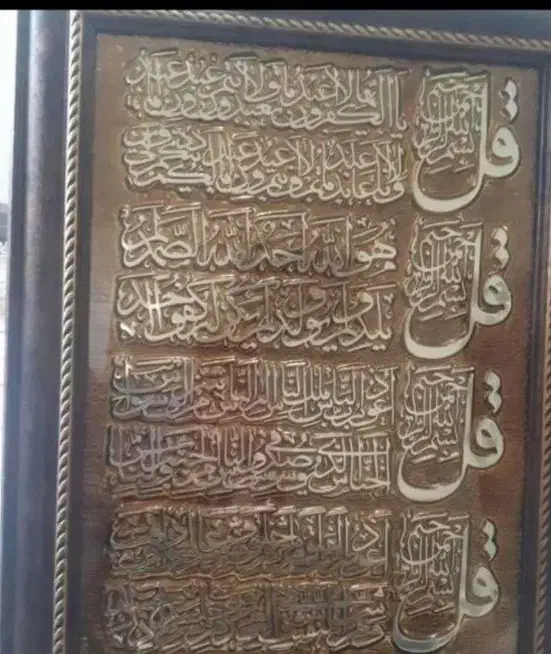 قل بسم الله الرحمن الرحيم
يا أيها الكفرون لا أعبد ما تعبدون ولا أنتم عبدون ما أعبد
ولا أنا عابد ما عبدتم ولا أنتم عبدون ما أعبد لكم دينكم ولي دين
قل بسم الله الرحمن الرحيم
هو الله أحد الله الصمد
لم يلد ولم يولد ولم يكن له كفوا أحد
قل بسم الله الرحمن الرحيم
أعوذ برب الناس ملك الناس إله الناس من شر الوسواس
الخناس الذي يوسوس في صدور الناس من الجنة والناس
قل بسم الله الرحمن الرحيم
أعوذ برب الفلق من شر ما خلق ومن شر غاسق إذا وقب
ومن شر النفثت في العقد ومن شر حاسد إذا حسد